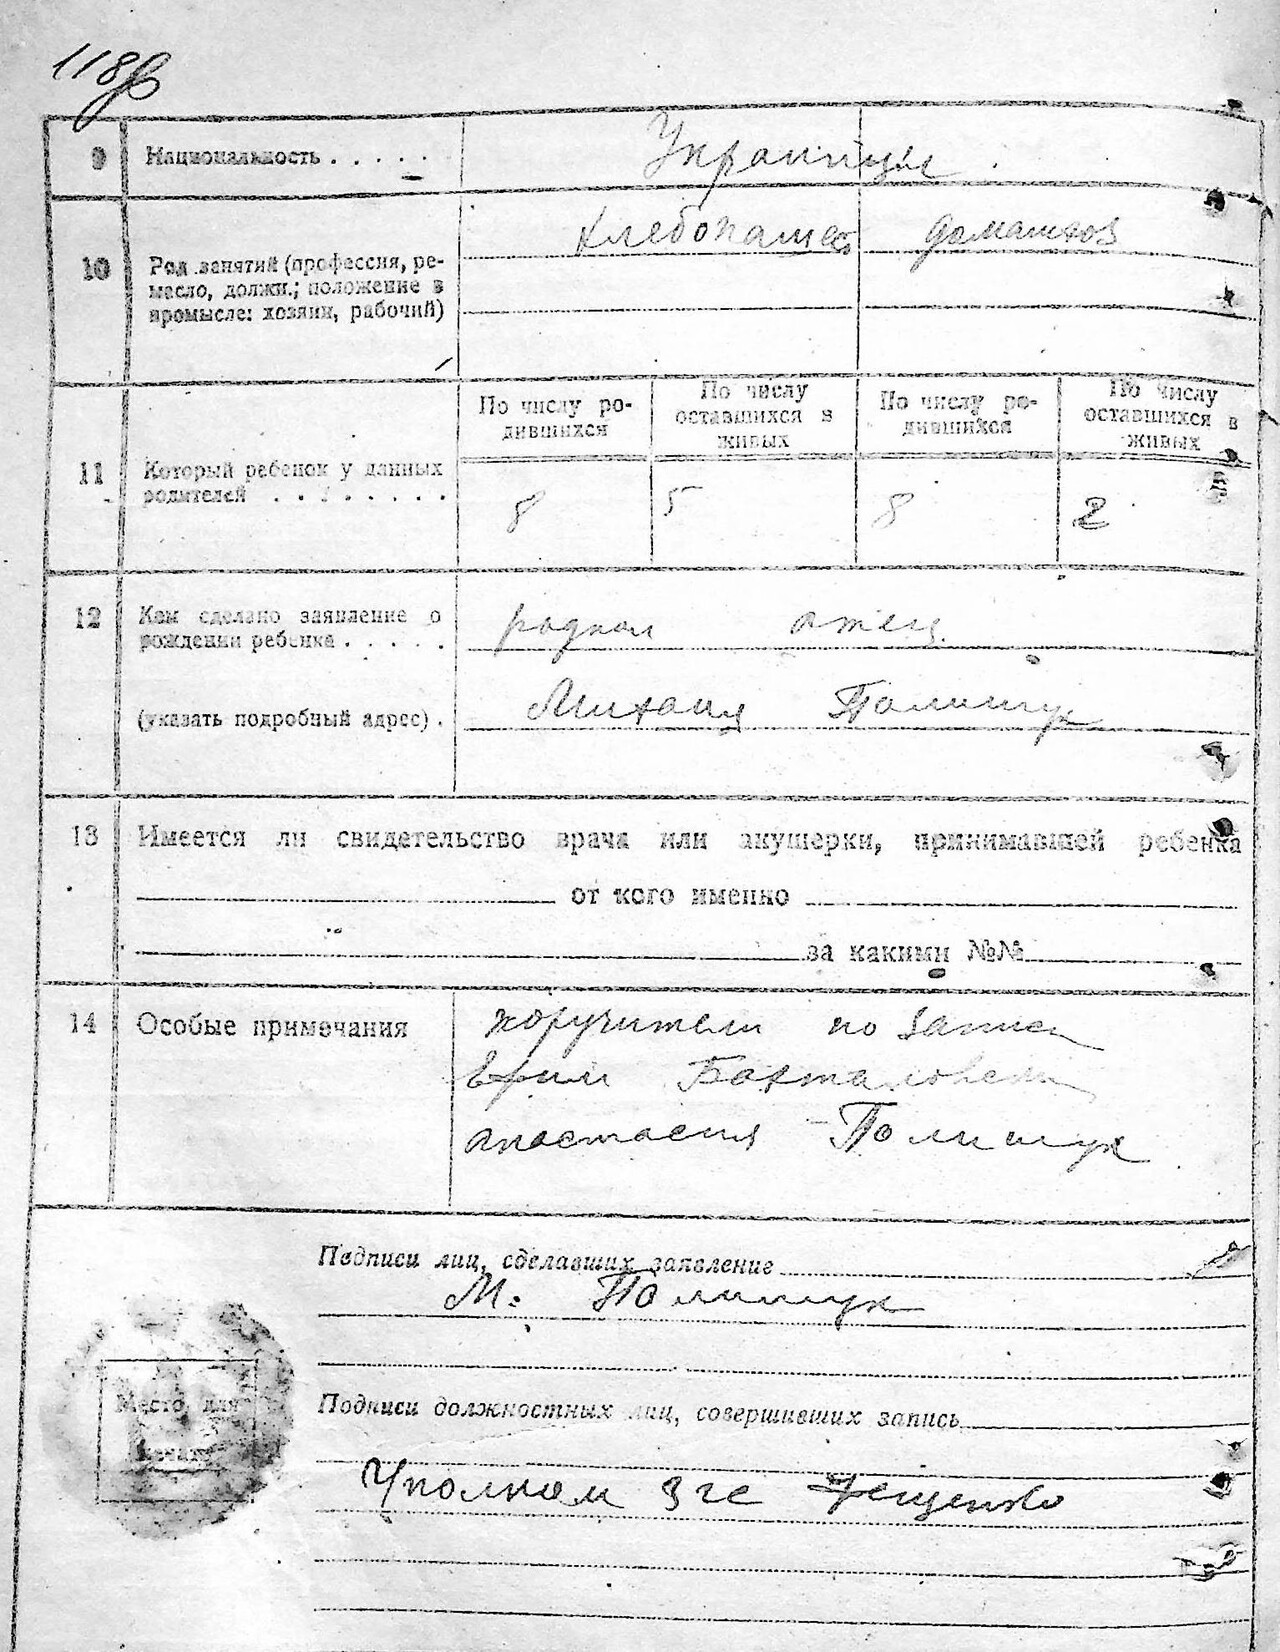 118
9 Национальность . . . . . Украинцы
хлебопашец домашхоз
10 Род занятий (профессия, ре-
месло, должн.; положение в
промысле: хозяин, рабочий)
По числу ро-
дившихся
По числу
оставшихся в
живых
По числу ро-
дившихся
По числу
оставшихся в
живых
11 Который ребенок у данных
родителей . . . . . . . .
8 5 8 2
12 Кем сделано заявление о
рождении ребенка . . . . .
родной отец
(указать подробный адрес) . Михаил Полищук
13 Имеется ли свидетельство врача или акушерки, принимавшей ребенка
от кого именно
за какими №№
14 Особые примечания поручители по записи
Ефим
Анастасия Полищук
Подписи лиц, сделавших заявление
М. Полищук
Место для
печати
Подписи должностных лиц, совершивших запись
Уполном Згс